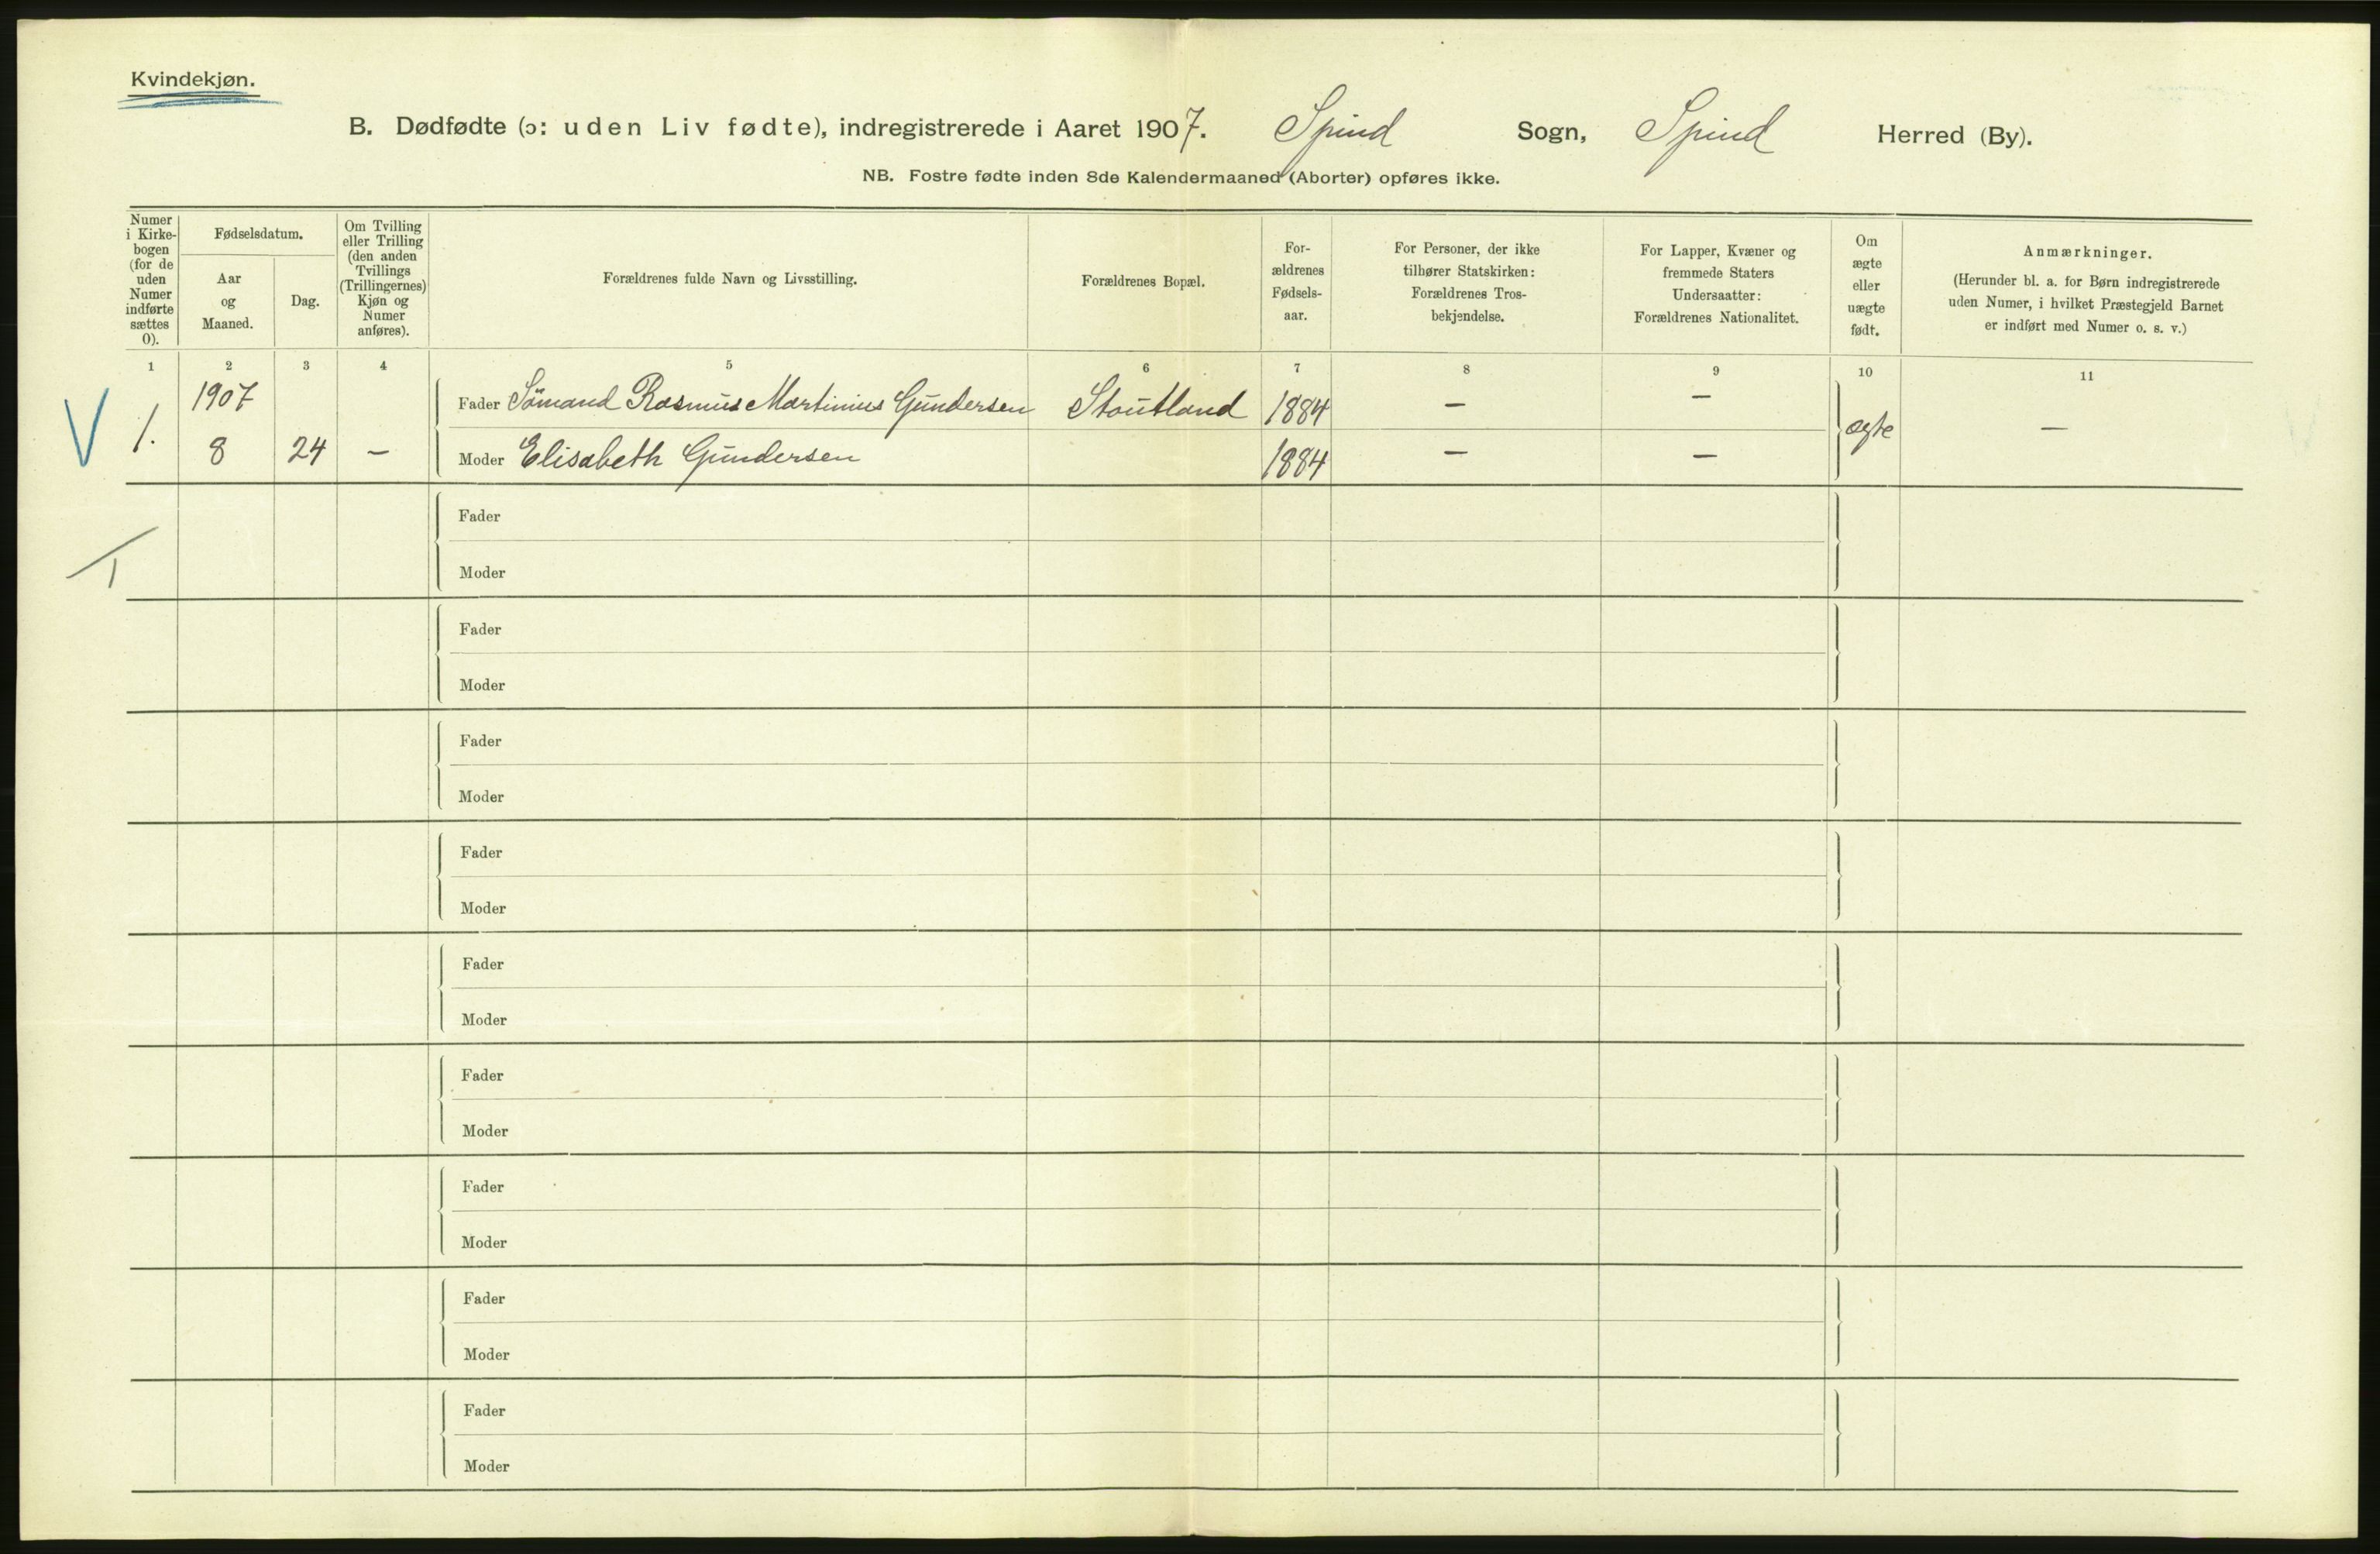 Kvindekjøn.
B. Dødfødte (ɔ: uden Liv fødte), indregistrerede i Aaret 1907. Spind Sogn, Spind Herred (By).
NB. Fostre fødte inden 8de Kalendermaaned (Aborter) opføres ikke.
Numer i Kirke-bogen (for de uden Numer indførte sættes 0).
Fødselsdatum.
Aar og Maaned.
Dag.
Om Tvilling eller Trilling (den anden Tvillings (Trillingernes) Kjøn og Numer anføres).
Forældrenes fulde Navn og Livsstilling.
Forældrenes Bopæl.
For-ældrenes Fødsels-aar.
For Personer, der ikke tilhører Statskirken: Forældrenes Tros-bekjendelse.
For Lapper, Kvæner og fremmede Staters Undersaatter: Forældrenes Nationalitet.
Om ægte eller uægte født.
Anmærkninger.
(Herunder bl. a. for Børn indregistrerede uden Numer, i hvilket Præstegjeld Barnet er indført med Numer o. s. v.)
1 2 3 4 5 6 7 8 9 10 11
V 1. 1907 Fader Sömand Rasmus Martinius Gundersen Stoutland 1884 — — ægte —
8 24 – Moder Elisabeth Gundersen 1884 — —
Fader
Moder
Fader
Moder
Fader
Moder
Fader
Moder
Fader
Moder
Fader
Moder
Fader
Moder
Fader
Moder
Fader
Moder